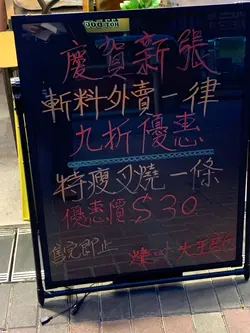 慶賀新張
斬料外賣一律
九折優惠
特瘦叉燒一條
優惠價$30
售完即止
燒味大王